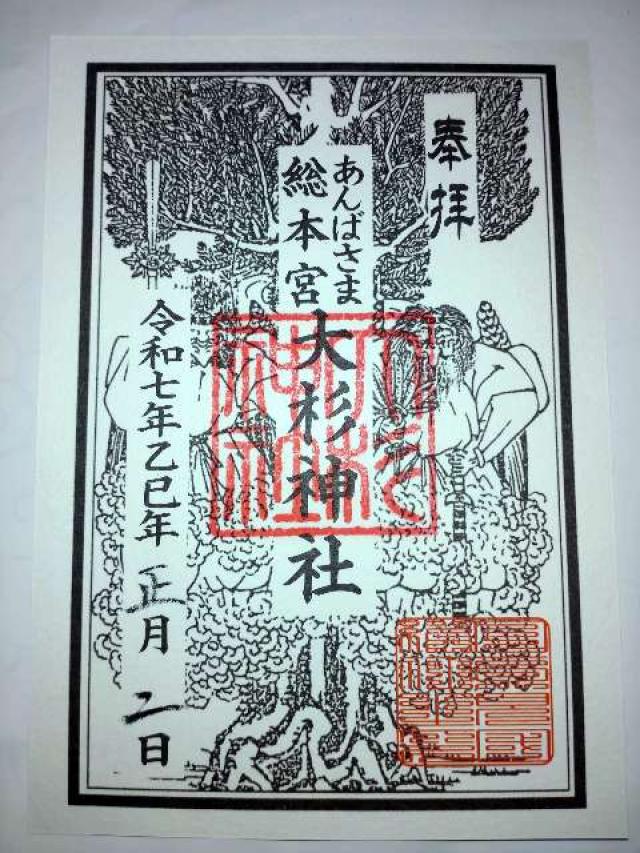 奉拝
あんばさま
総本宮
大杉神社
令和七年乙巳年正月二日